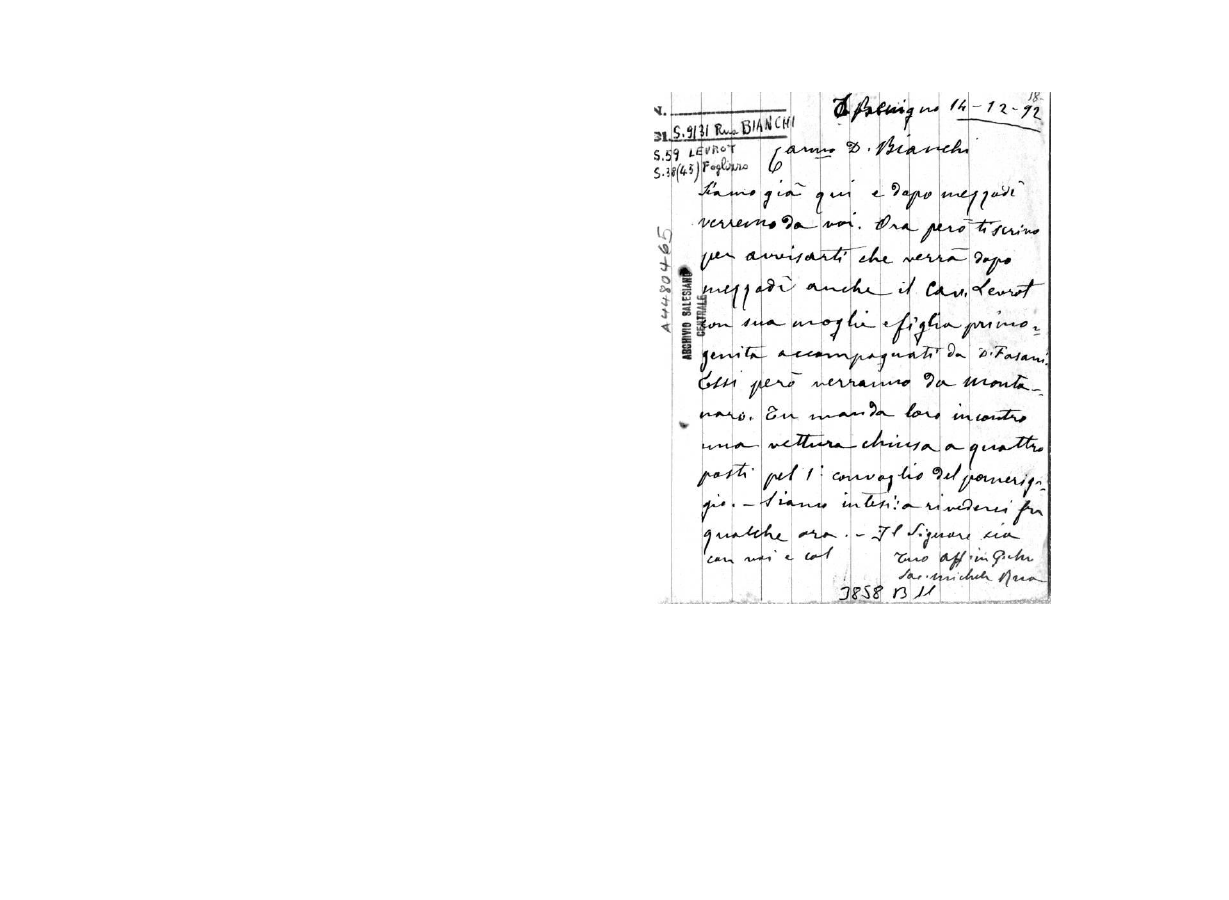 18-
S. Benigno 14-12-92
N.
S.9131 Rua BIANCHI
S.59 LEVROT
S.38(43) Foglizzo
Carmo D. Bianchi
Siamo già qui e dopo mezzodì
verremo da voi. Ora però ti scrivo
per avvisarti che verrà dopo
mezzodì anche il Cav. Levrot
con sua moglie e figlia primo-
genita accompagnati da D. Fasani.
Essi però verranno da Monta-
naro. Tu manda loro incontro
una vettura chiusa a quattro
posti pel 1° convoglio del pomerig-
gio. - Siamo intesi: a rivederci fra
qualche ora. - Il Signore sia
con voi e col Tuo aff. in G. 
Sac. Michele Rua
A4480465
ARCHIVIO SALESIANO
CENTRALE
3858 B 11